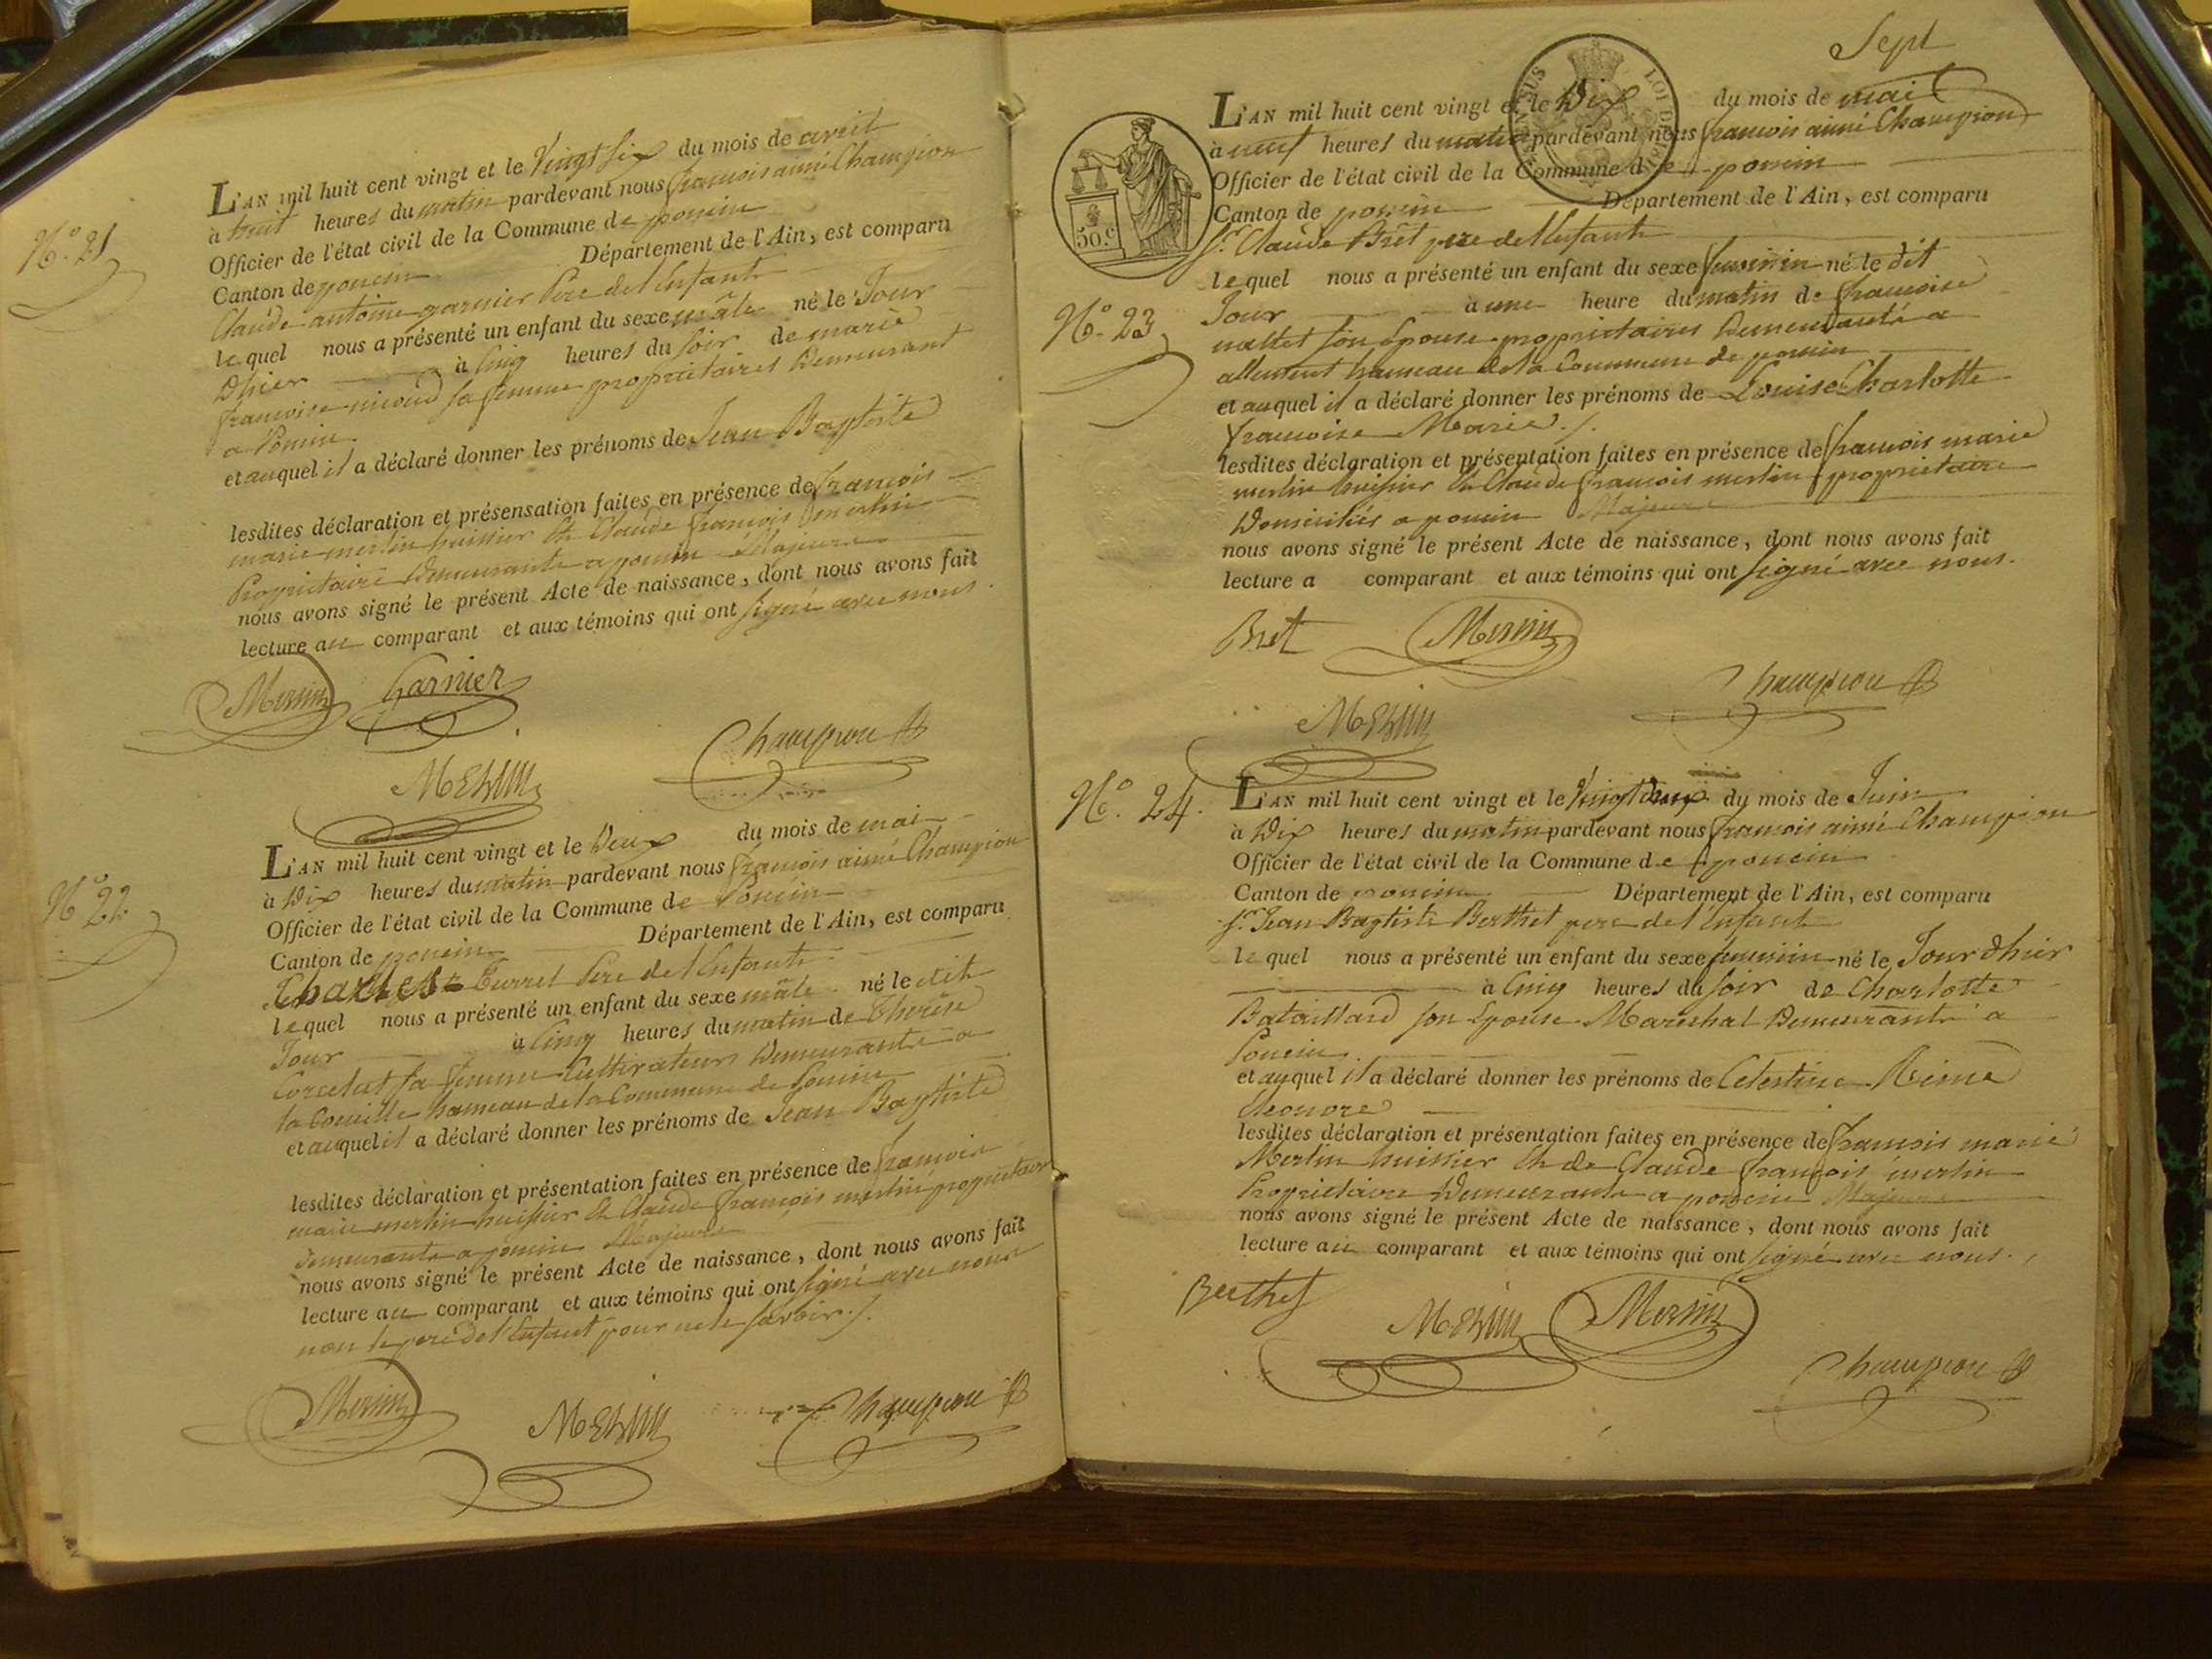 N.° 21
L'AN mil huit cent vingt et le Vingt six du mois de avril
à huit heures du matin pardevant nous françois aimé Champion
Officier de l'état civil de la Commune de poncin
Canton de poncin Département de l'Ain, est comparu
Claude antoine garnier Pere de l'Enfant
lequel nous a présenté un enfant du sexe mâle né le Jour
Dhier à Cinq heures du soir de marie
françoise nicoud sa femme proprietaires Demeurant
a Poncin
et auquel il a déclaré donner les prénoms de Jean Baptiste
lesdites déclaration et présensation faites en présence de francois
marie merlin huissier Et Claude françois merlin
Proprietaire Demeurants a poncin Majeurs
nous avons signé le présent Acte de naissance, dont nous avons fait
lecture au comparant et aux témoins qui ont signé avec nous
Merlin Garnier
Merlin Champion
N.° 22
L'AN mil huit cent vingt et le Deux du mois de mai
à Dix heures du matin pardevant nous françois aimé Champion
Officier de l'état civil de la Commune de Poncin
Canton de poncin Département de l'Ain, est comparu
Charles Turrel Pere de l'Enfant
lequel nous a présenté un enfant du sexe mâle né le dit
Jour à Cinq heures du matin de Therèse
Corcelat sa femme Cultivateurs Demeurants a
la hameau de la Commune de Poncin
et auquel il a déclaré donner les prénoms de Jean Baptiste
lesdites déclaration et présentation faites en présence de françois
marie merlin huissier Et Claude francois merlin proprietaire
demeurants a poncin Majeurs
nous avons signé le présent Acte de naissance, dont nous avons fait
lecture au comparant et aux témoins qui ont signé avec nous
non le pere de l'Enfant pour ne le savoir ./.
Merlin Merlin Champion
Sept
50.c
N.° 23
L'AN mil huit cent vingt et le Dix du mois de mai
à neuf heures du matin pardevant nous francois aimé Champion
Officier de l'état civil de la Commune de poncin
Canton de poncin Département de l'Ain, est comparu
Sr. Claude Bret pere de l'Enfant
lequel nous a présenté un enfant du sexe feminin né le dit
Jour à une heure du matin de francoise
mallet son Epouse proprietaires Demeurants a
allement hameau de la Commune de poncin
et auquel il a déclaré donner les prénoms de Louise Charlotte
francoise Marie ./.
lesdites déclaration et présentation faites en présence de francois marie
merlin huissier Et Claude francois merlin proprietaire
Domiciliés a poncin Majeurs
nous avons signé le présent Acte de naissance, dont nous avons fait
lecture a comparant et aux témoins qui ont signé avec nous.
Bret Merlin
Merlin Champion
N.° 24.
L'AN mil huit cent vingt et le Vingt deux du mois de Juin
à Dix heures du matin pardevant nous francois aimé Champion
Officier de l'état civil de la Commune de poncin
Canton de poncin Département de l'Ain, est comparu
Sr. Jean Baptiste Berthet pere de l'Enfant
lequel nous a présenté un enfant du sexe feminin né le Jour dhier
à Cinq heures du soir de Charlotte
Bataillard son Epouse Mareshal Demeurants a
Poncin
et auquel il a déclaré donner les prénoms de Celestine
Eleonore
lesdites déclaration et présentation faites en présence de francois marie
Merlin huissier Et de Claude françois merlin
Proprietaire Demeurants a poncin Majeurs
nous avons signé le présent Acte de naissance, dont nous avons fait
lecture au comparant et aux témoins qui ont signé avec nous.
Berthet Merlin Merlin
Champion